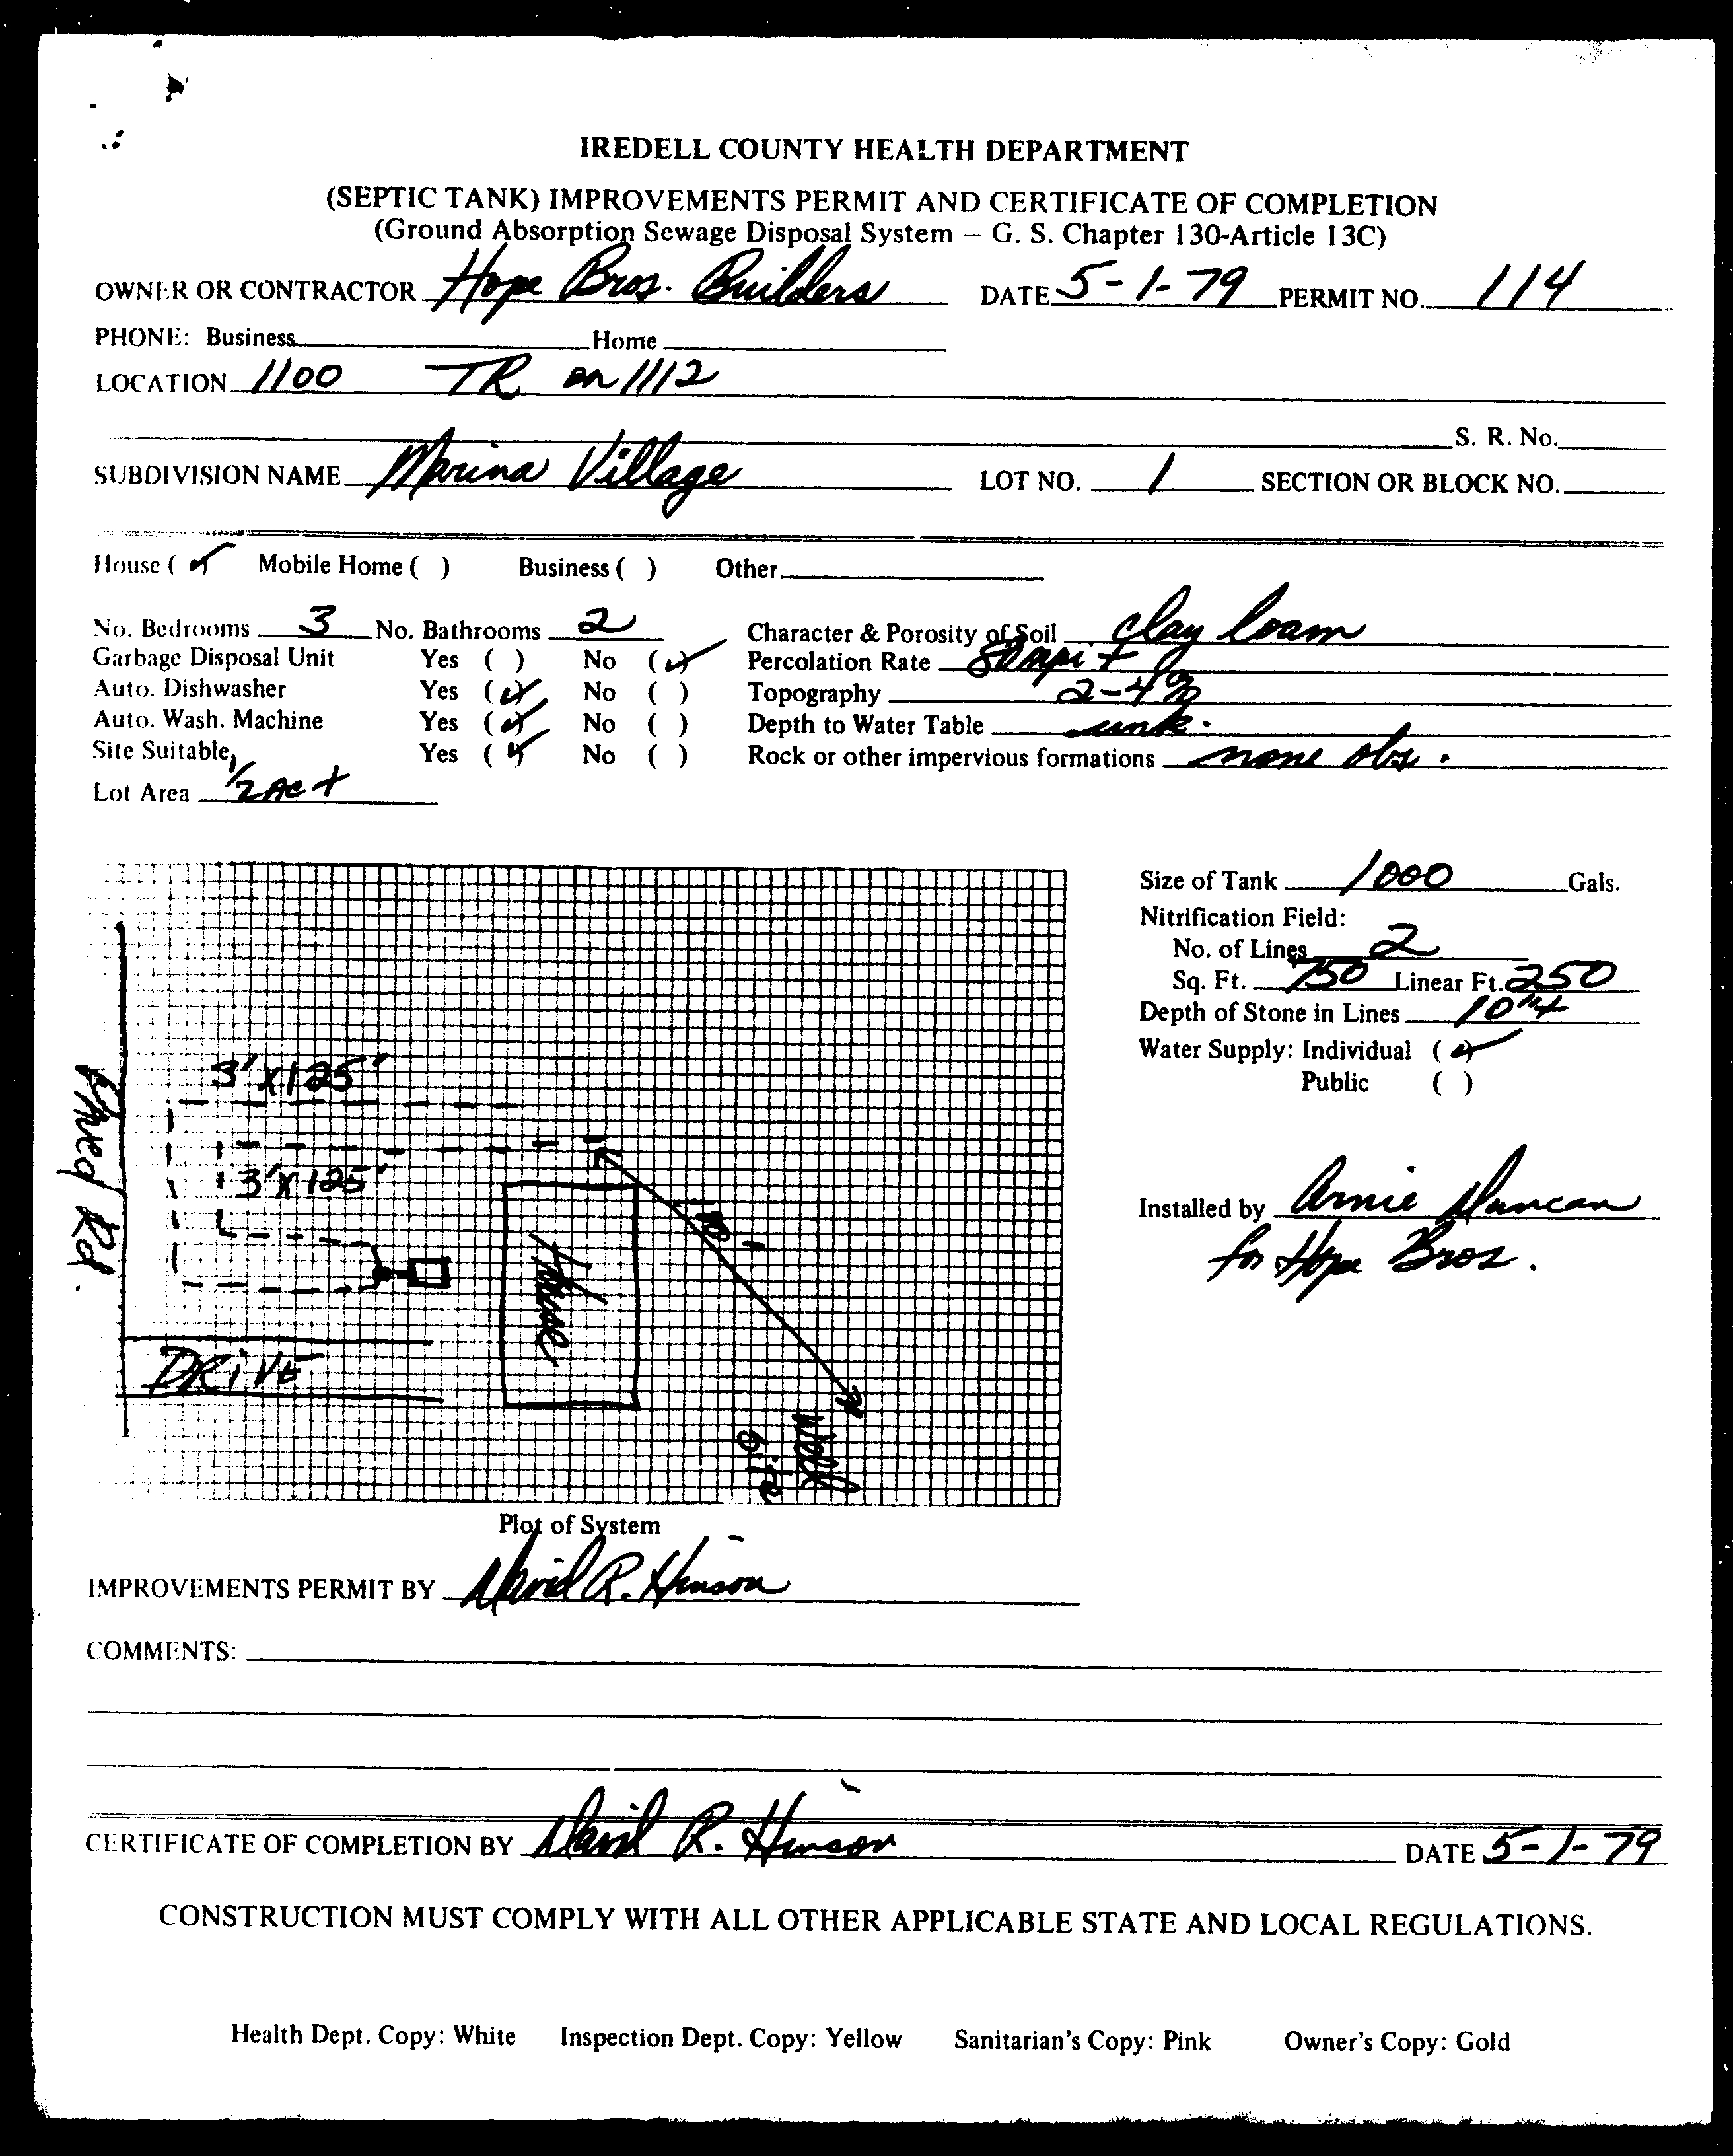 IREDELL COUNTY HEALTH DEPARTMENT
(SEPTIC TANK) IMPROVEMENTS PERMIT AND CERTIFICATE OF COMPLETION
(Ground Absorption Sewage Disposal System – G. S. Chapter 130-Article 13C)
OWNER OR CONTRACTOR Hope Bros. Builders DATE 5-1-79 PERMIT NO. 114
PHONE: Business Home
LOCATION 1100 TR on 1112
S. R. No.
SUBDIVISION NAME Marina Village LOT NO. 1 SECTION OR BLOCK NO.
House (✓) Mobile Home ( ) Business ( ) Other
No. Bedrooms 3 No. Bathrooms 2 Character & Porosity of Soil clay loam
Garbage Disposal Unit Yes ( ) No (✓) Percolation Rate 80 mpi +
Auto. Dishwasher Yes (✓) No ( ) Topography 2-4%
Auto. Wash. Machine Yes (✓) No ( ) Depth to Water Table unk.
Site Suitable Yes (✓) No ( ) Rock or other impervious formations none obs.
Lot Area 1/2 Ac +
Size of Tank 1000 Gals.
Nitrification Field:
No. of Lines 2
Sq. Ft. 750 Linear Ft. 250
Depth of Stone in Lines 10"+
Water Supply: Individual (✓)
Public ( )
Installed by Arnie Duncan
for Hope Bros.
Paved Rd.
3'x125'
3'x125'
House
DRiVE
Well
site
Plot of System
IMPROVEMENTS PERMIT BY David R. Hinson
COMMENTS:
CERTIFICATE OF COMPLETION BY David R. Hinson DATE 5-1-79
CONSTRUCTION MUST COMPLY WITH ALL OTHER APPLICABLE STATE AND LOCAL REGULATIONS.
Health Dept. Copy: White Inspection Dept. Copy: Yellow Sanitarian's Copy: Pink Owner's Copy: Gold